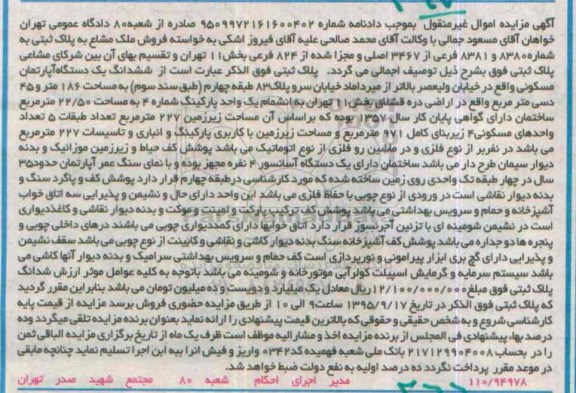 آگهی مزایده اموال غیرمنقول بموجب دادنامه شماره ۹۵۰۹۹۷۲۱۶۱۶۰۰۴۰۲ صادره از شعبه ۸۰ دادگاه عمومی تهران
خواهان آقای مسعود جمالی با وکالت آقای محمد صالحی علیه آقای فیروز اشکی به خواسته فروش ملک مشاع به پلاک ثبتی به
شماره ۸۳۸۰ و ۸۳۸۱ فرعی از ۳۴۶۷ اصلی و مجزا شده از ۸۲۴ فرعی بخش ۱۱ تهران و تقسیم بهای آن بین شرکای مشاعی
پلاک ثبتی فوق بشرح ذیل توصیف اجمالی می گردد. پلاک ثبتی فوق الذکر عبارت است از ششدانگ یک دستگاه آپارتمان
مسکونی واقع در خیابان ولیعصر بالاتر از میرداماد خیابان سرو پلاک ۸۳ طبقه چهارم (طبق سند سوم) به مساحت ۱۸۶ متر و ۴۵
دسی متر مربع واقع در اراضی دره قشلاق بخش ۱۱ تهران به انضمام یک واحد پارکینگ شماره ۴ به مساحت ۲۲/۵۰ مترمربع
ساختمان دارای گواهی پایان کار سال ۱۳۵۷ بوده که بر اساس آن مساحت زیرزمین ۲۲۷ مترمربع تعداد طبقات ۵ تعداد
واحدهای مسکونی ۴ زیربنای کامل ۹۷۱ مترمربع و مساحت زیرزمین با کاربری پارکینگ و انباری و تاسیسات ۲۲۷ مترمربع
می باشد در نفربر از نوع فلزی و در ماشین رو فلزی از نوع اتوماتیک می باشد پوشش کف حیاط و زیرزمین موزائیک و بدنه
دیوار سیمان طرح دار می باشد ساختمان دارای یک دستگاه آسانسور ۴ نفره مجهز بوده و با نمای سنگ عمر آپارتمان حدود ۳۵
سال در چهار طبقه تک واحدی روی زمین ساخته شده که مورد کارشناسی در طبقه چهارم قرار دارد پوشش کف و پاگرد سنگ و
بدنه دیوار نقاشی است در ورودی از نوع چوبی با حفاظ فلزی می باشد این واحد دارای حال و نشیمن و پذیرایی سه اتاق خواب
آشپزخانه و حمام و سرویس بهداشتی می باشد پوشش کف ترکیب پارکت و لمینت وموکت و بدنه دیوار نقاشی و کاغذدیواری
است در نشیمن شومینه ای با تزئین آجرنسوز قرار دارد اتاق خوابها دارای کمددیواری چوبی می باشند درهای داخلی چوبی و
پنجره ها دو جداره می باشد پوشش کف آشپزخانه سنگ بدنه دیوار کاشی و نقاشی و کابینت از نوع چوبی می باشد سقف نشیمن
و پذیرایی دارای گچ بری ابزار پیرامونی و نورپردازی است کف حمام و سرویس بهداشتی سرامیک و بدنه دیوار آنها کاشی می
باشد سیستم سرمایه و گرمایش اسپیلت کولرآبی موتورخانه و شومینه می باشد باتوجه به کلیه عوامل موثر ارزش شدانگ
پلاک ثبتی فوق مبلغ ۱۲/۱۰۰/۰۰۰/۰۰۰ ریال معادل یک میلیارد و دویست و ده میلیون تومان می باشد بنابراین مقرر گردید
که پلاک ثبتی فوق الذکر در تاریخ ۱۳۹۵/۹/۱۷ ساعت ۹ الی ۱۰ از طریق مزایده حضوری فروش برسد مزایده از قیمت پایه
کارشناسی شروع و به شخص حقیقی و حقوقی که بالاترین قیمت پیشنهادی را ارائه نماید بعنوان برنده مزایده تلقی میگردد وده
درصد بهاء پیشنهادی فی المجلس از برنده مزایده اخذ و مشارالیه موظف است ظرف یک ماه از تاریخ برگزاری مزایده الباقی ثمن
را در بحساب ۲۱۷۱۲۹۹۰۴۰۰۸ بانک ملی شعبه فهمیده کد ۰۳۴۲ واریز و فیش انرا به این اجرا تسلیم نماید چنانچه مابقی
در موعد مقرر پرداخت نگردد ده درصد اولیه به نفع دولت ضبط خواهد شد.
۱۱۰/۹۴۹۷۸ مدیر اجرای احکام شعبه ۸۰ مجتمع شهید صدر تهران